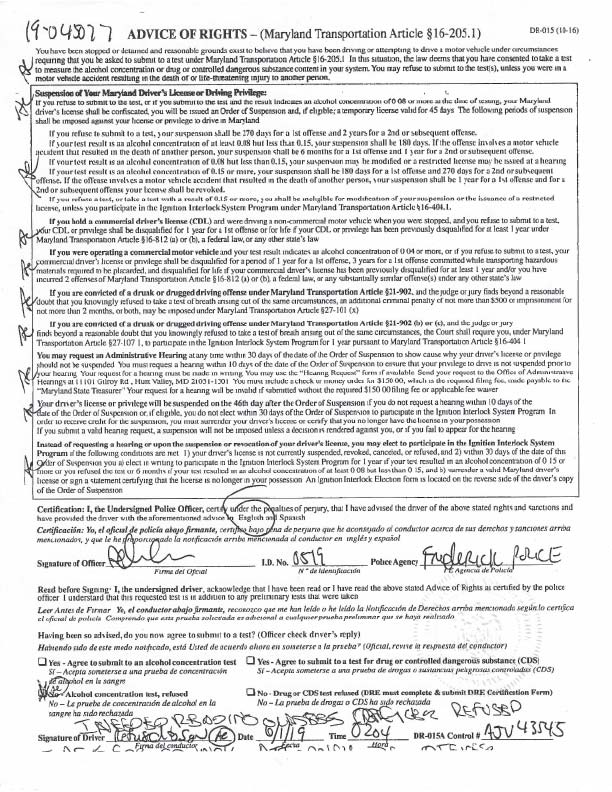 19-045027
ADVICE OF RIGHTS – (Maryland Transportation Article §16-205.1)
DR-015 (10-16)
You have been stopped or detained and reasonable grounds exist to believe that you have been driving or attempting to drive a motor vehicle under circumstances
requiring that you be asked to submit to a test under Maryland Transportation Article §16-205.1 In this situation, the law deems that you have consented to take a test
to measure the alcohol concentration or drug or controlled dangerous substance content in your system. You may refuse to submit to the test(s), unless you were in a
motor vehicle accident resulting in the death of or life-threatening injury to another person.
Suspension of Your Maryland Driver's License or Driving Privilege:
If you refuse to submit to the test, or if you submit to the test and the result indicates an alcohol concentration of 0 08 or more at the time of testing, your Maryland
driver's license shall be confiscated, you will be issued an Order of Suspension and, if eligible, a temporary license valid for 45 days The following periods of suspension
shall be imposed against your license or privilege to drive in Maryland
If you refuse to submit to a test, your suspension shall be 270 days for a 1st offense and 2 years for a 2nd or subsequent offense.
If your test result is an alcohol concentration of at least 0.08 but less than 0.15, your suspension shall be 180 days. If the offense involves a motor vehicle
accident that resulted in the death of another person, your suspension shall be 6 months for a 1st offense and 1 year for a 2nd or subsequent offense.
If your test result is an alcohol concentration of 0.08 but less than 0.15, your suspension may be modified or a restricted license may be issued at a hearing
If your test result is an alcohol concentration of 0.15 or more, your suspension shall be 180 days for a 1st offense and 270 days for a 2nd or subsequent
offense. If the offense involves a motor vehicle accident that resulted in the death of another person, your suspension shall be 1 year for a 1st offense and for a
2nd or subsequent offense your license shall be revoked.
If you refuse a test, or take a test with a result of 0.15 or more, you shall be ineligible for modification of your suspension or the issuance of a restricted
license, unless you participate in the Ignition Interlock System Program under Maryland Transportation Article §16-404.1.
If you hold a commercial driver's license (CDL) and were driving a non-commercial motor vehicle when you were stopped, and you refuse to submit to a test,
your CDL or privilege shall be disqualified for 1 year for a 1st offense or for life if your CDL or privilege has been previously disqualified for at least 1 year under
Maryland Transportation Article §16-812 (a) or (b), a federal law, or any other state's law
If you were operating a commercial motor vehicle and your test result indicates an alcohol concentration of 0 04 or more, or if you refuse to submit to a test, your
commercial driver's license or privilege shall be disqualified for a period of 1 year for a 1st offense, 3 years for a 1st offense committed while transporting hazardous
materials required to be placarded, and disqualified for life if your commercial driver's license has been previously disqualified for at least 1 year and/or you have
incurred 2 offenses of Maryland Transportation Article §16-812 (a) or (b), a federal law, or any substantially similar offense(s) under any other state's law
If you are convicted of a drunk or drugged driving offense under Maryland Transportation Article §21-902, and the judge or jury finds beyond a reasonable
doubt that you knowingly refused to take a test of breath arising out of the same circumstances, an additional criminal penalty of not more than $500 or imprisonment for
not more than 2 months, or both, may be imposed under Maryland Transportation Article §27-101 (x)
If you are convicted of a drunk or drugged driving offense under Maryland Transportation Article §21-902 (b) or (c), and the judge or jury
finds beyond a reasonable doubt that you knowingly refused to take a test of breath arising out of the same circumstances, the Court shall require you, under Maryland
Transportation Article §27-107 1, to participate in the Ignition Interlock System Program for 1 year pursuant to Maryland Transportation Article §16-404 1
You may request an Administrative Hearing at any time within 30 days of the date of the Order of Suspension to show cause why your driver's license or privilege
should not be suspended You must request a hearing within 10 days of the date of the Order of Suspension to ensure that your privilege to drive is not suspended prior to
your hearing. Your request for a hearing must be made in writing. You may use the "Hearing Request" form if available. Send your request to the Office of Administrative
Hearings at 11101 Gilroy Rd , Hunt Valley, MD 21031-1301 You must include a check or money order for $150 00, which is the required filing fee, made payable to the
"Maryland State Treasurer" Your request for a hearing will be invalid if submitted without the required $150 00 filing fee or applicable fee waiver
Your driver's license or privilege will be suspended on the 46th day after the Order of Suspension if you do not request a hearing within 10 days of the
date of the Order of Suspension or, if eligible, you do not elect within 30 days of the Order of Suspension to participate in the Ignition Interlock System Program In
order to receive credit for the suspension, you must surrender your driver's license or certify that you no longer have the license in your possession
If you submit a valid hearing request, a suspension will not be imposed unless a decision is rendered against you, or if you fail to appear for the hearing
Instead of requesting a hearing or upon the suspension or revocation of your driver's license, you may elect to participate in the Ignition Interlock System
Program if the following conditions are met 1) your driver's license is not currently suspended, revoked, canceled, or refused, and 2) within 30 days of the date of this
Order of Suspension you a) elect in writing to participate in the Ignition Interlock System Program for 1 year if your test resulted in an alcohol concentration of 0 15 or
more or you refused the test or 6 months if your test resulted in an alcohol concentration of at least 0 08 but less than 0 15, and b) surrender a valid Maryland driver's
license or sign a statement certifying that the license is no longer in your possession An Ignition Interlock Election form is located on the reverse side of the driver's copy
of the Order of Suspension
Certification: I, the Undersigned Police Officer, certify under the penalties of perjury, that I have advised the driver of the above stated rights and sanctions and
have provided the driver with the aforementioned advice in English and Spanish
Certificación: Yo, el oficial de policía abajo firmante, certifico bajo pena de perjurio que he aconsejado al conductor acerca de sus derechos y sanciones arriba
mencionados, y que le he proporcionado la notificación arriba mencionada al conductor en inglés y español
Signature of Officer I.D. No. 0519 Police Agency FREDERICK POLICE
Firma del Oficial N° de Identificación Agencia de Policía
Read before Signing: I, the undersigned driver, acknowledge that I have been read or I have read the above stated Advice of Rights as certified by the police
officer I understand that this requested test is in addition to any preliminary tests that were taken
Leer Antes de Firmar Yo, el conductor abajo firmante, reconozco que me han leído o he leído la Notificación de Derechos arriba mencionada según lo certifica
el oficial de policía Comprendo que esta prueba solicitada es adicional a cualquier prueba preliminar que se haya realizado
Having been so advised, do you now agree to submit to a test? (Officer check driver's reply)
Habiendo sido de este modo notificado, está Usted de acuerdo ahora en someterse a la prueba? (Oficial, revise la respuesta del conductor)
Yes - Agree to submit to an alcohol concentration test
Sí – Acepta someterse a una prueba de concentración
de alcohol en la sangre
Yes - Agree to submit to a test for drug or controlled dangerous substance (CDS)
Sí – Acepta someterse a una prueba de drogas o sustancias peligrosas controladas (CDS)
No - Alcohol concentration test, refused
No – La prueba de alcohol en la concentración de la
sangre ha sido rechazada
No - Drug or CDS test refused (DRE must complete & submit DRE Certification Form)
No – La prueba de drogas o CDS ha sido rechazada
I NEEDED READING GLASSES REFUSED
Signature of Driver Refused to Sign Date 6/1/19 Time 0204 DR-015A Control # AJV43545
Firma del conductor Fecha Hora